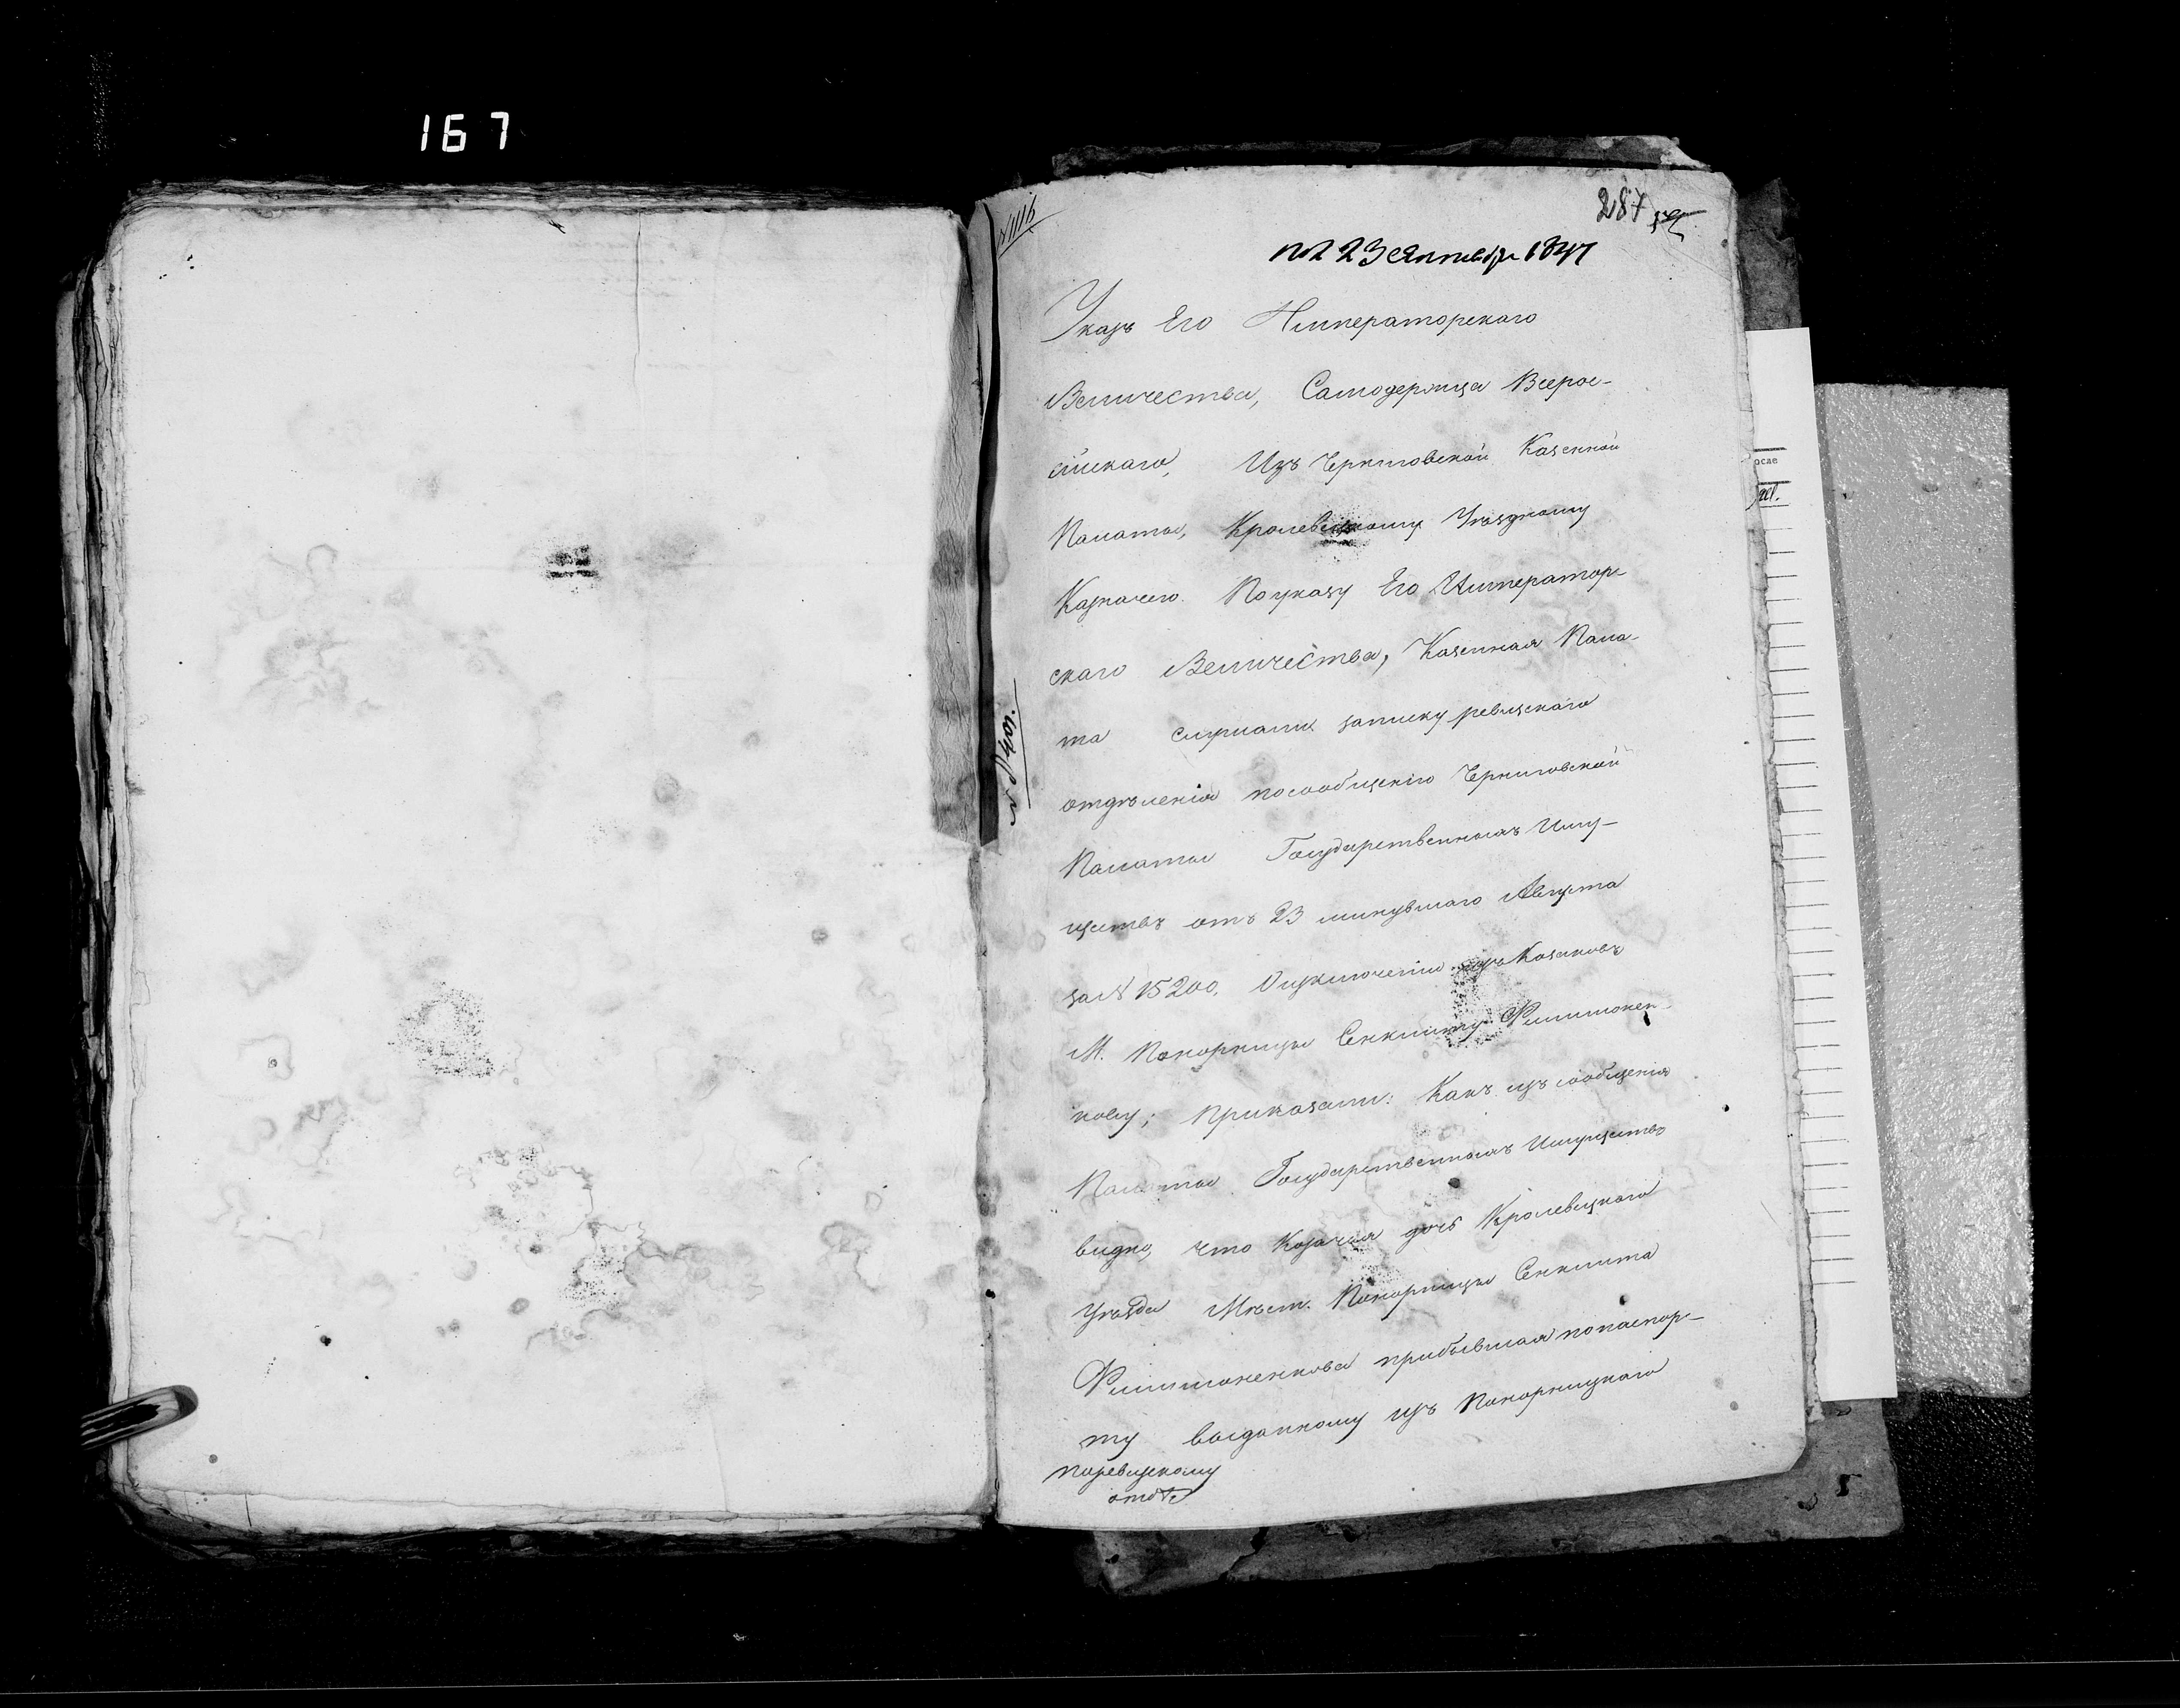 167
287
пол 23 сентября 1847
Указъ Его Императорскаго
Величества, Самодержца Всерос-
сійскаго, Изъ Черниговской Казенной
Палаты, Кролевецкому Уездному
Казначею. По указу Его Император-
скаго Величества, Казенная Пала-
та слушали записку ревизскаго
отделенія по сообщенію Черниговской
Палаты Государственныхъ Иму-
ществъ отъ 23 минувшаго Августа
за № 15200. О изключеніи изъ Козаковъ
М. Понорницы Секлиту Филимонен-
кову; приказали: Какъ изъ сообщенія
Палаты Государственныхъ Имуществъ
видно, что Козачья дочь Кролевецкаго
Уезда Мест. Понорницы Секлита
Филимоненкова прибывшая по паспор-
ту выданному изъ Понорницкаго
по ревизскому
отде